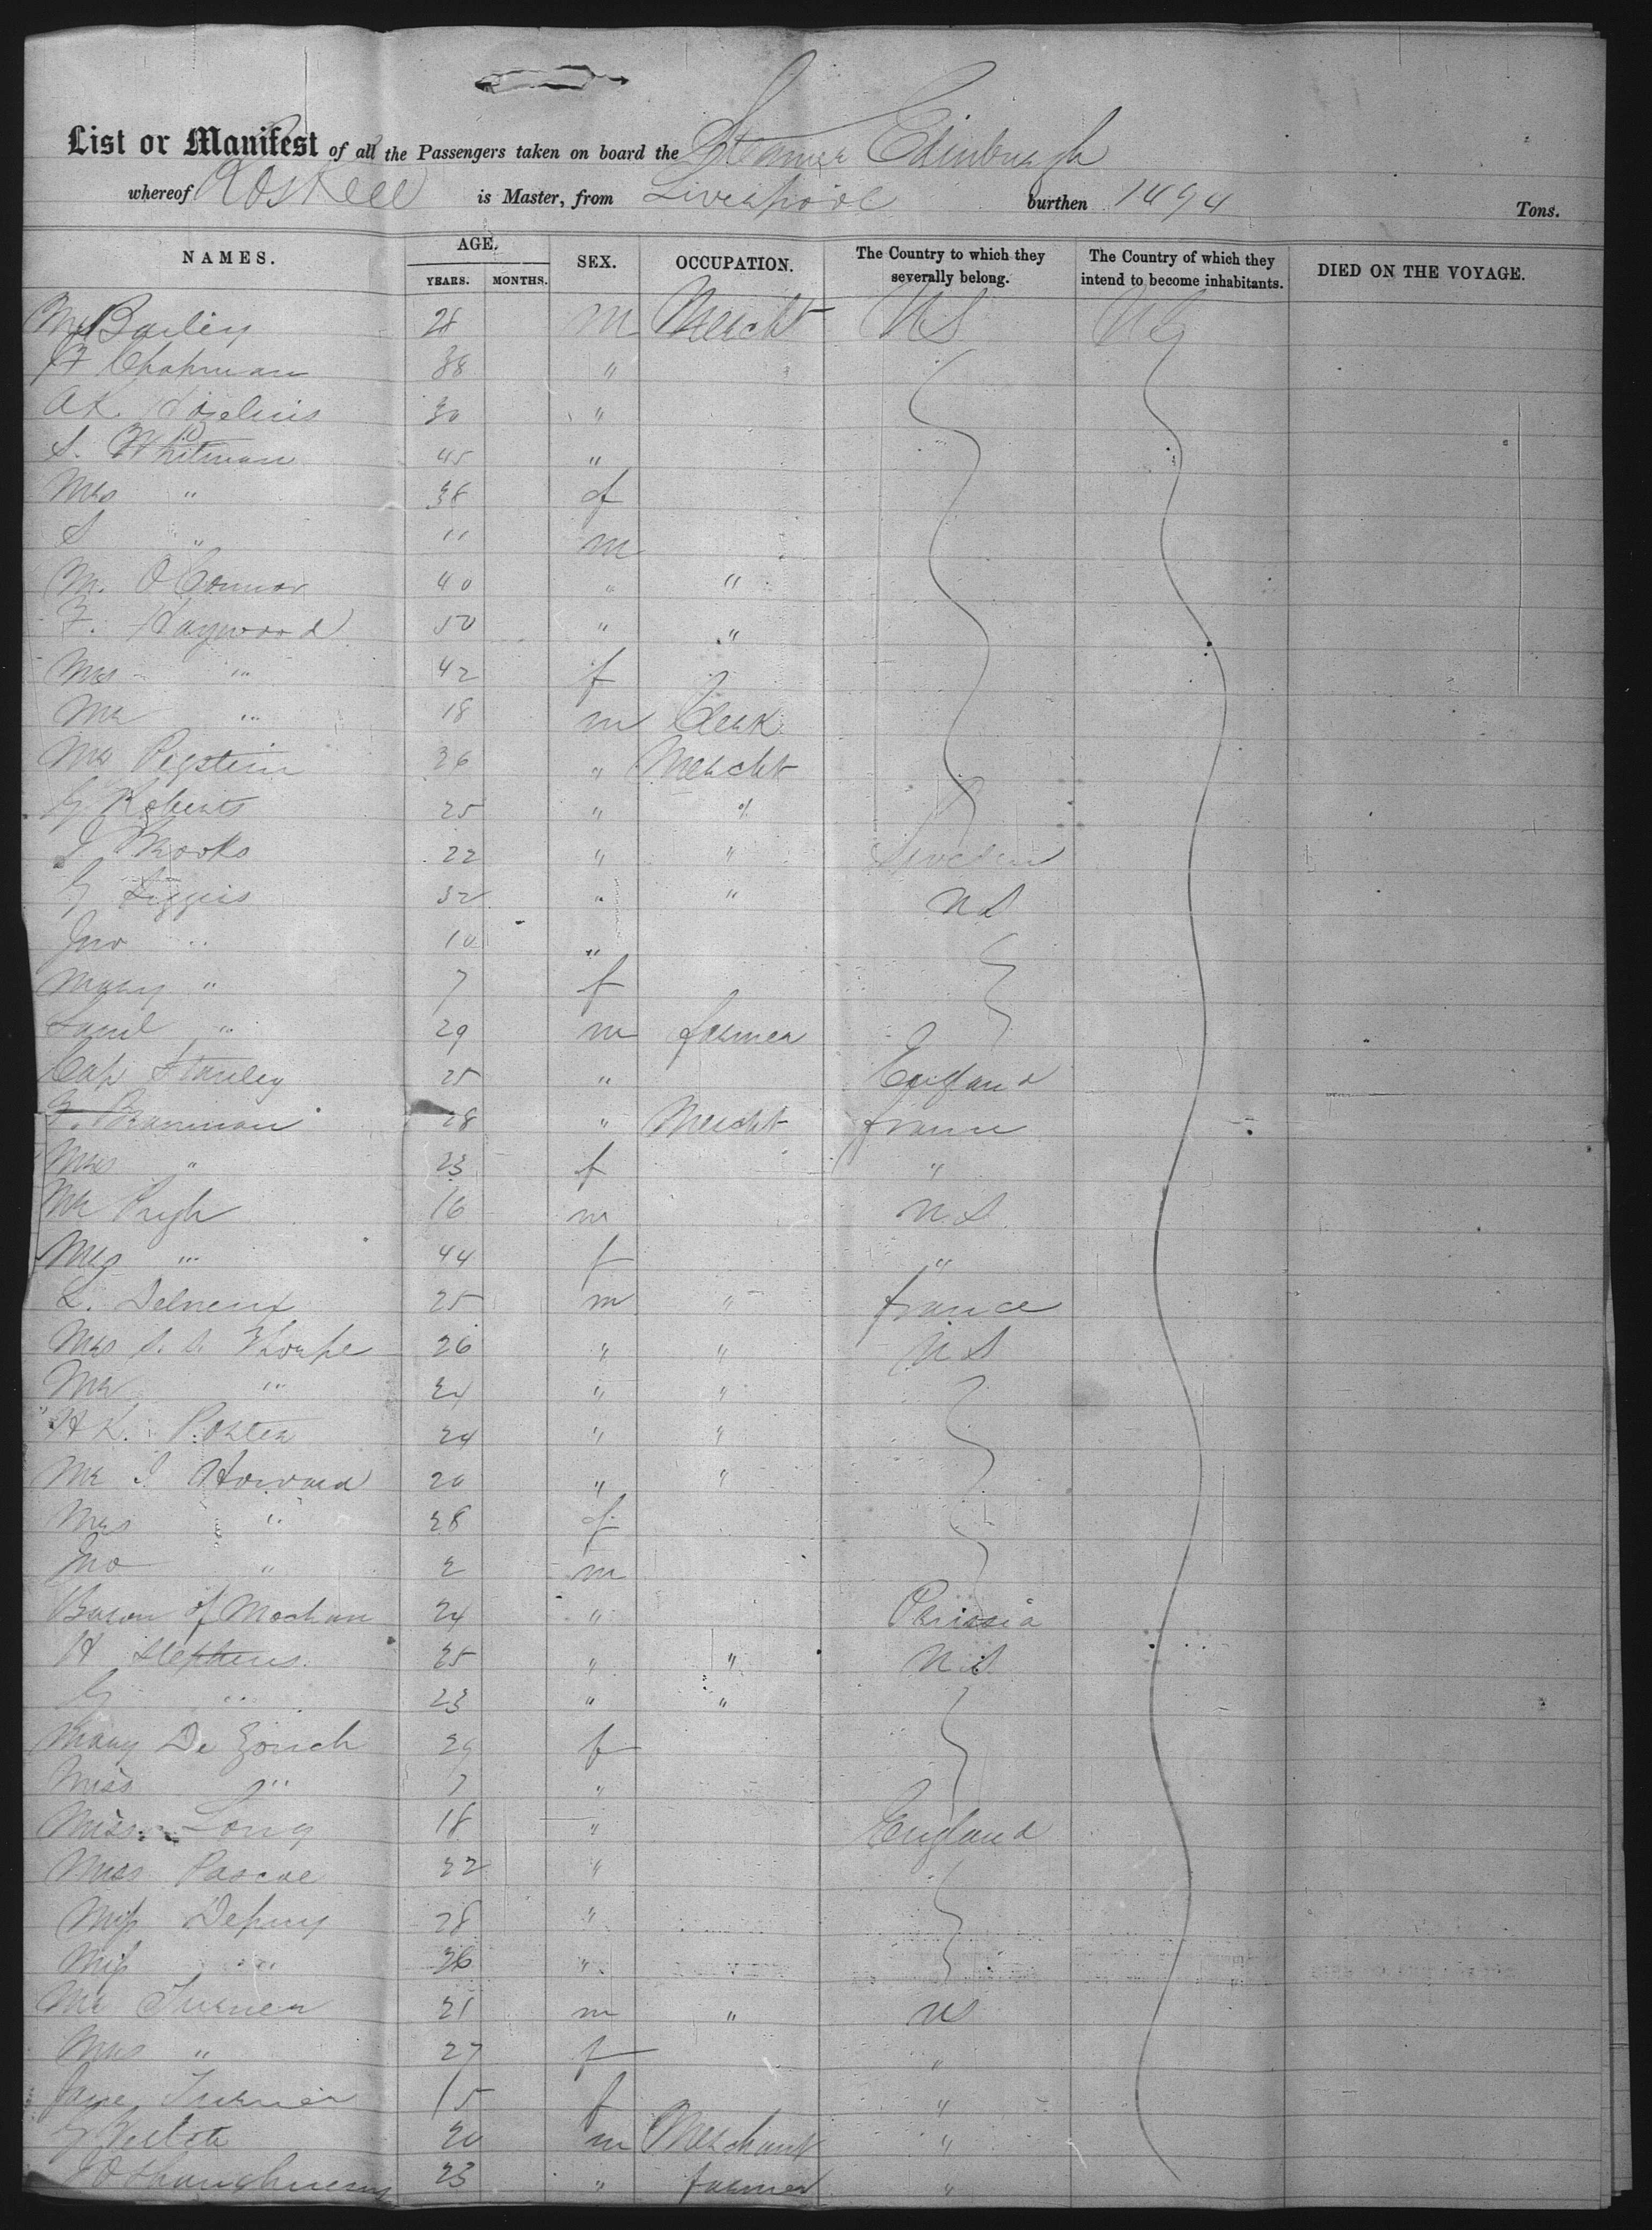 List or Manifest of all the Passengers taken on board the Steamer Edinburgh
whereof Roskell is Master, from Liverpool burthen 1494 Tons.
NAMES. AGE. YEARS. MONTHS. SEX. OCCUPATION. The Country to which they severally belong. The Country of which they intend to become inhabitants. DIED ON THE VOYAGE.
Bailey 28 m Mercht US US
Chapman 38 "
A K 30 "
S. Whitman 45 "
Mrs " 38 f
S " 11 m
M. O'Connor 40 " "
F. Haywood 50 " "
Mrs " 42 f
Mr " 18 m Clerk
Mr 26 " Mercht
G Roberts 25 " "
J Brooks 22 " " Sweden
G Liggis 32 " " US
Jno " 10 "
Mary " 7 f
Saml " 29 m farmer
Cap Stanley 25 " England
28 " Mercht France
Mrs " 23 f "
Mr Pugh 16 m US
Mrs " 44 f "
L. 25 m " France
Mrs S. S. Thorpe 26 " " US
Mr " 24 " "
H K. Porter 24 " "
Mr J Howard 20 " "
Mrs " 28 f
Jno " 2 m
Baron of 24 " Prussia
H Stephens 25 " " US
G " 23 " "
Mary De Zouch 29 f
Miss " 7 "
Miss Long 18 " England
Miss Pascoe 22 "
Miss Depuy 28 "
Miss " 26 "
Mr Turner 21 m " US
Mrs " 27 f "
Jane Turner 15 f "
G 20 m Merchant "
J O Shaughnessy 23 " farmer "